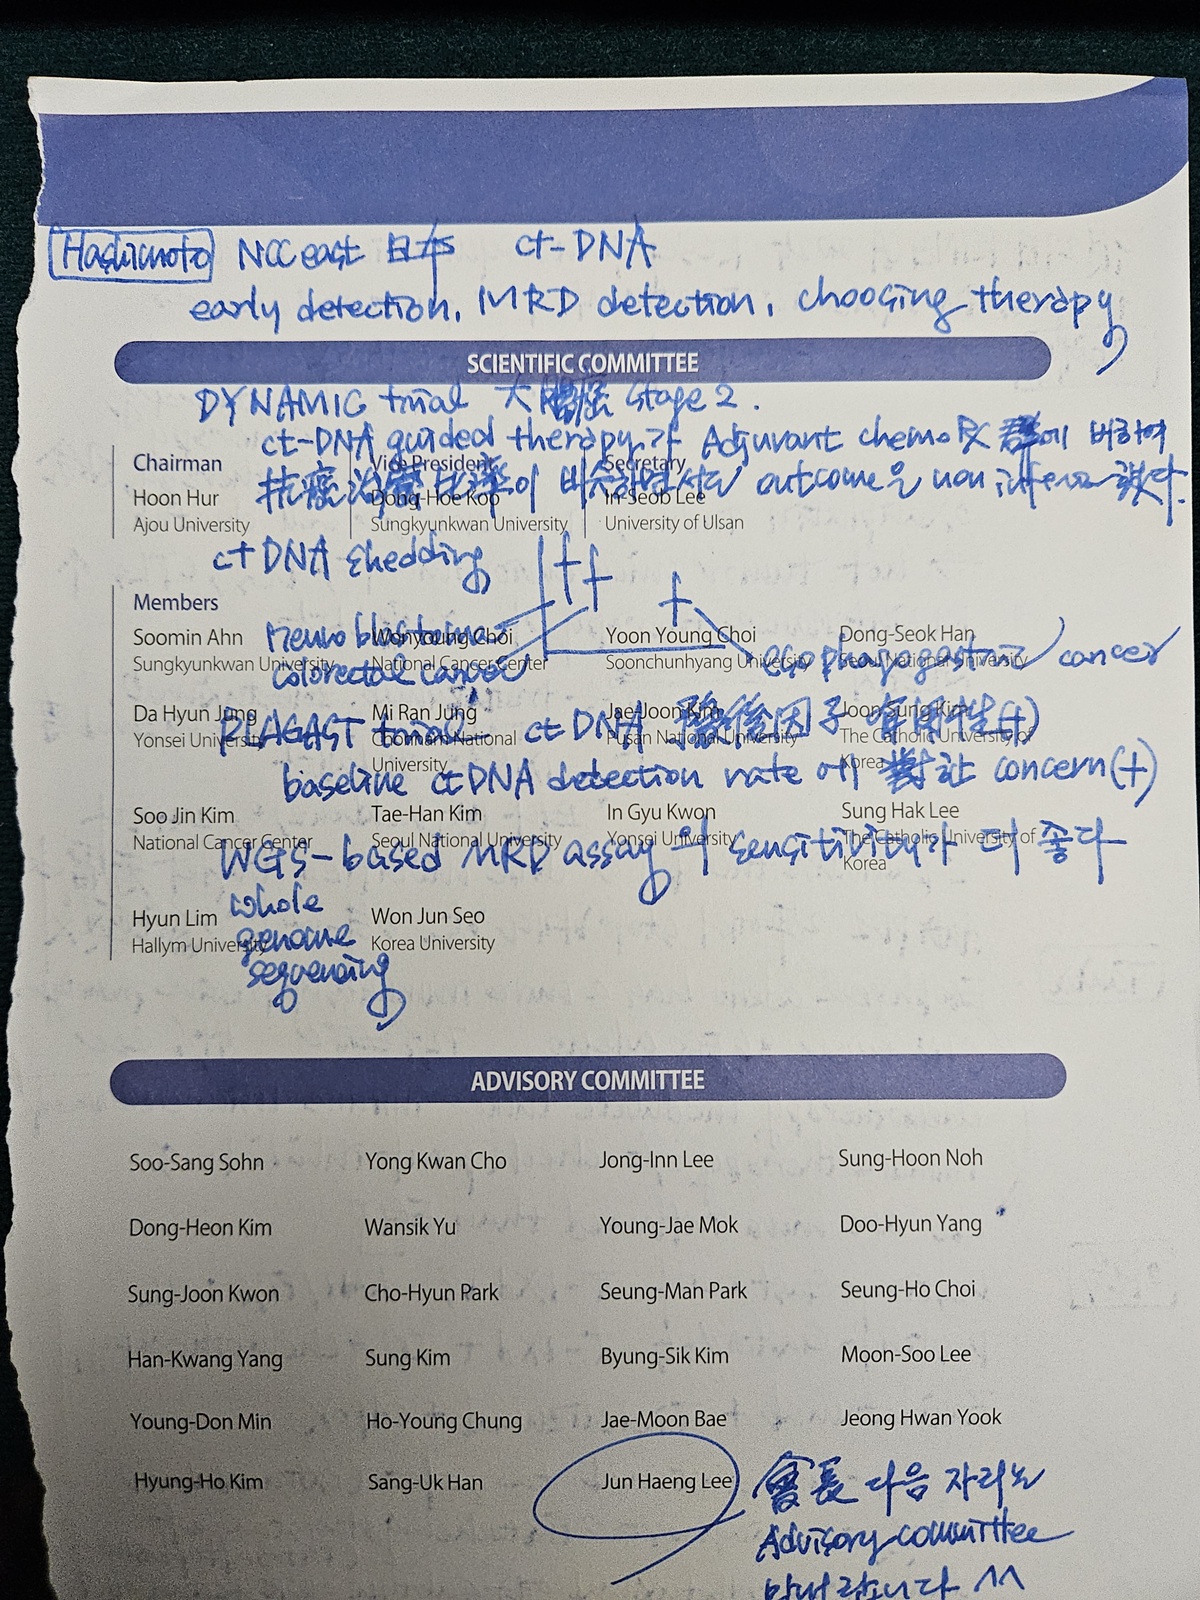 Hashimoto NCC east 日本 ct-DNA
early detection, MRD detection, choosing therapy
SCIENTIFIC COMMITTEE
DYNAMIC trial 大腸癌 stage 2.
ct-DNA guided therapy가 Adjuvant chemo Rx 群에 비하여
Chairman Vice President Secretary
抗癌治療 比率이 비슷하면서도 outcome은 non inferior 했다.
Hoon Hur Dong-Hoe Koo In-Seob Lee
Ajou University Sungkyunkwan University University of Ulsan
ct DNA shedding
Members
Soomin Ahn Wonyoung Choi Yoon Young Choi Dong-Seok Han
neuro blastoma
Sungkyunkwan University National Cancer Center Soonchunhyang University Seoul National University
colorectal cancer esophagogastric cancer
Da Hyun Jung Mi Ran Jung Jae-Joon Kim Joon Sung Kim
PLAGAST trial ct DNA 豫後因子 有用性(+)
Yonsei University Chonnam National University Pusan National University The Catholic University of Korea
baseline ctDNA detection rate에 對한 concern(+)
Soo Jin Kim Tae-Han Kim In Gyu Kwon Sung Hak Lee
National Cancer Center Seoul National University Yonsei University The Catholic University of Korea
WGS-based MRD assay의 sensitivity가 더 좋다
whole
genome
sequencing
Hyun Lim Won Jun Seo
Hallym University Korea University
ADVISORY COMMITTEE
Soo-Sang Sohn Yong Kwan Cho Jong-Inn Lee Sung-Hoon Noh
Dong-Heon Kim Wansik Yu Young-Jae Mok Doo-Hyun Yang
Sung-Joon Kwon Cho-Hyun Park Seung-Man Park Seung-Ho Choi
Han-Kwang Yang Sung Kim Byung-Sik Kim Moon-Soo Lee
Young-Don Min Ho-Young Chung Jae-Moon Bae Jeong Hwan Yook
Hyung-Ho Kim Sang-Uk Han Jun Haeng Lee
會長 다음 자리는
Advisory committee
^^